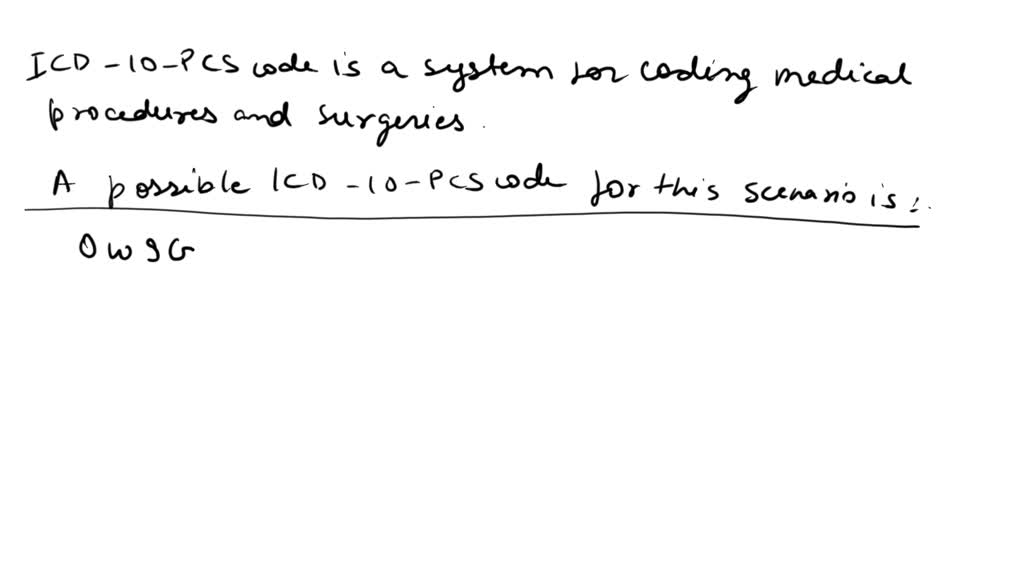 ICD-10-PCS code is a system for coding medical
procedures and surgeries.
A possible ICD-10-PCS code for this scenario is:
0W9G